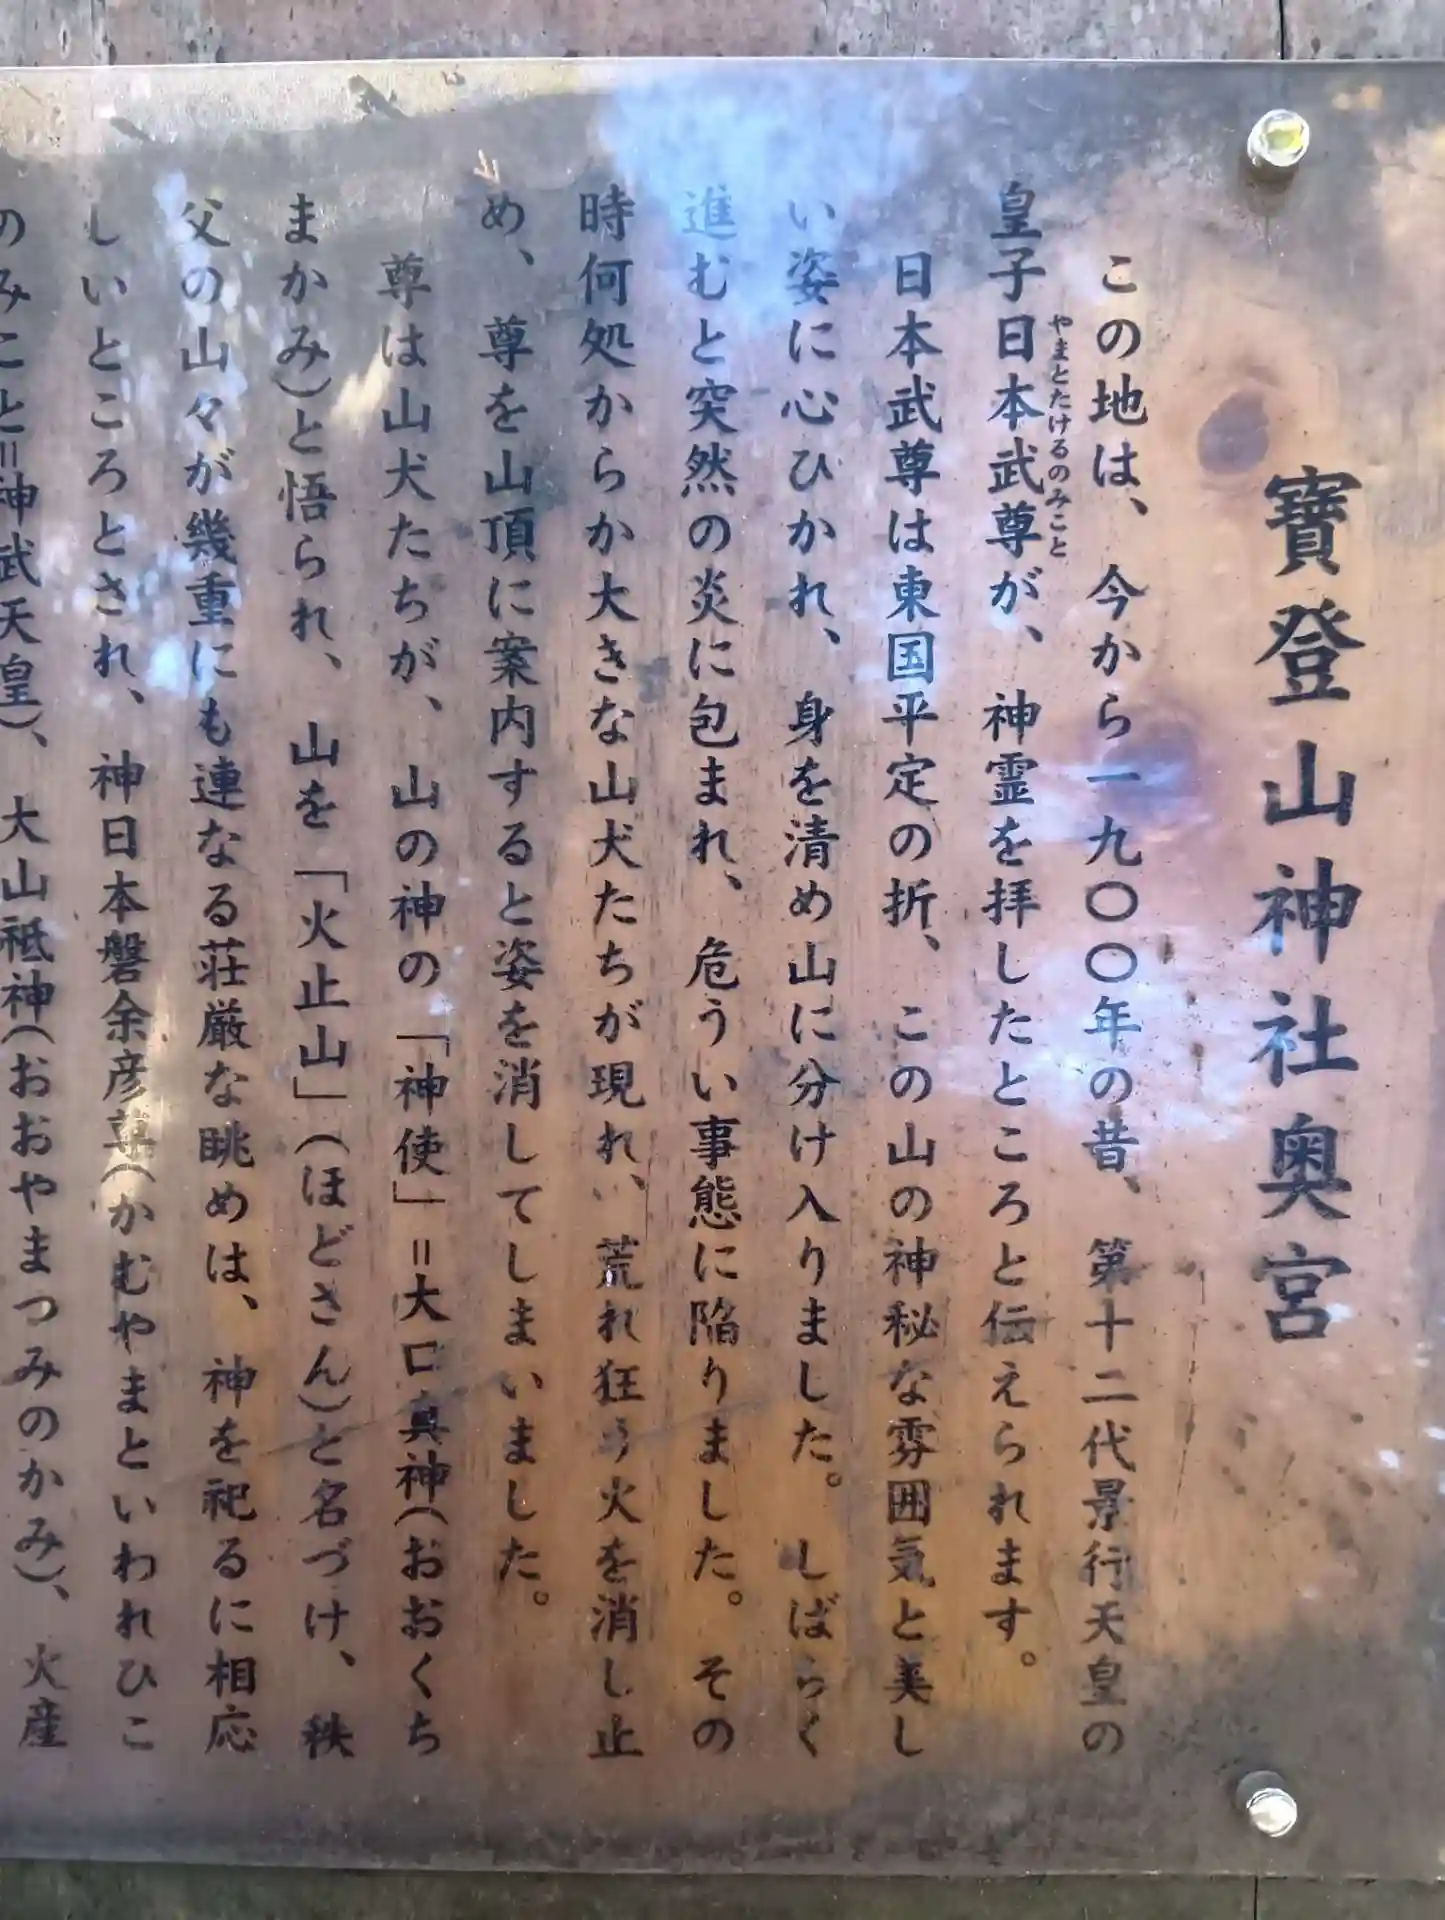 寶登山神社奥宮
この地は、今から一九〇〇年の昔、第十二代景行天皇の
皇子日本武尊が、神霊を拝したところと伝えられます。
やまとたけるのみこと
日本武尊は東国平定の折、この山の神秘な雰囲気と美し
い姿に心ひかれ、身を清め山に分け入りました。しばらく
進むと突然の炎に包まれ、危うい事態に陥りました。その
時何処からか大きな山犬たちが現れ、荒れ狂う火を消し止
め、尊を山頂に案内すると姿を消してしまいました。
尊は山犬たちが、山の神の「神使」=大口真神(おおくち
まかみ)と悟られ、山を「火止山」(ほどさん)と名づけ、秩
父の山々が幾重にも連なる荘厳な眺めは、神を祀るに相応
しいところとされ、神日本磐余彦尊(かむやまといわれひこ
のみこと=神武天皇)、大山祗神(おおやまつみのかみ)、火産